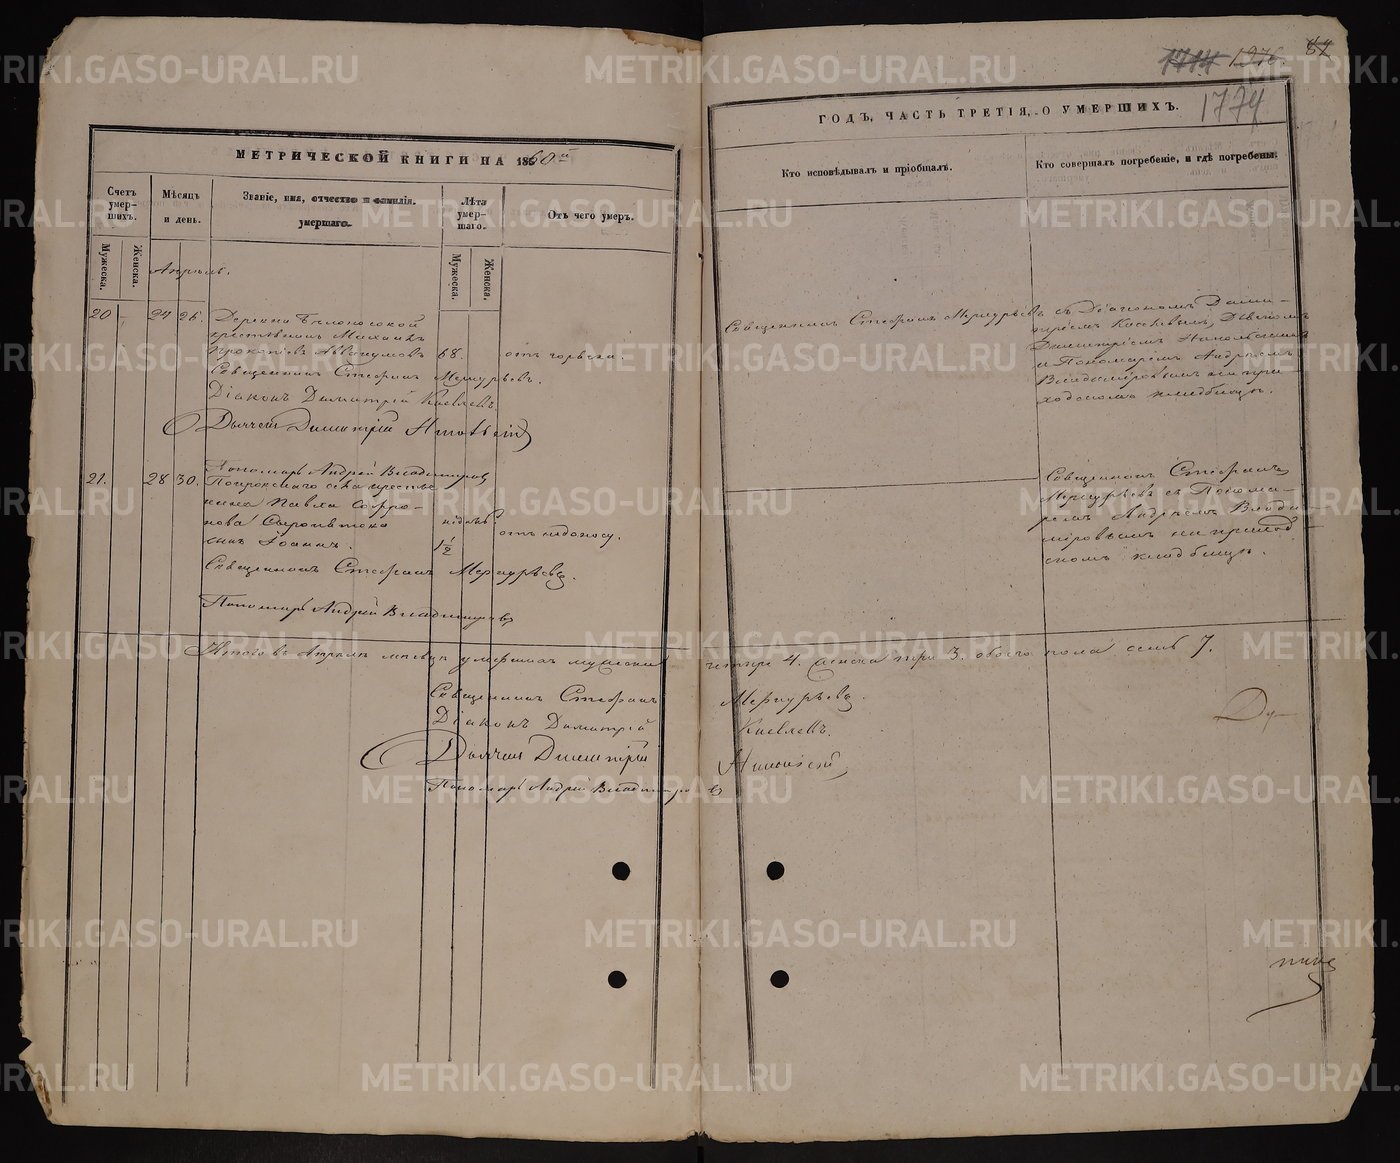 1714 1976. 82
1774
МЕТРИЧЕСКОЙ КНИГИ НА 1860й
ГОДЪ, ЧАСТЬ ТРЕТІЯ, О УМЕРШИХЪ.
Счетъ умер-шихъ.
Мужеска.
Женска.
Мѣсяцъ и день.
Званіе, имя, отчество и фамилія умершаго.
Лѣта умер-шаго.
Мужеска.
Женска.
Отъ чего умеръ.
Кто исповѣдывалъ и пріобщалъ.
Кто совершалъ погребеніе, и гдѣ погребены.
Апрѣль.
20 - 24 26.
Деревни Бѣлоносовой
крестьянинъ Михаилъ
Прокопіевъ Аввакумовъ 68. отъ
Священникъ Стефанъ Меркурьевъ.
Діаконъ Димитрій
Дьячекъ Димитрій
Пономарь Андрей Владимировъ
Священникъ Стефанъ Меркурьевъ съ Діакономъ Дими-
тріемъ
Димитріемъ
и Пономаремъ Андреемъ
Владимировымъ на при
ходскомъ кладбищѣ.
21. 28 30.
Покровскаго села крестья-
нина Павла Софро-
нова
сынъ Іоаннъ.
1½
отъ
Священникъ Стефанъ Меркурьевъ.
Пономарь Андрей Владимировъ
Священникъ Стефанъ
Меркурьевъ съ Понома-
ремъ Андреемъ Влади-
міровымъ на приход
скомъ кладбищѣ.
Итого въ Апрѣлѣ мѣсяцѣ умершихъ мужеска четыре 4. женска три 3. обоего пола семь 7.
Священникъ Стефанъ Меркурьевъ.
Діаконъ Димитрій
Дьячекъ Димитрій
Пономарь Андрей Владимировъ
METRIKI.GASO-URAL.RU